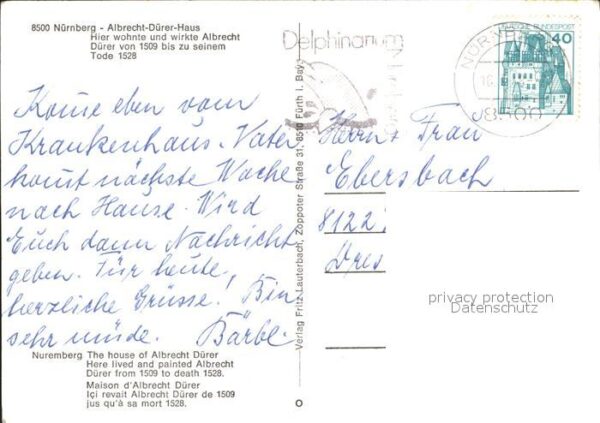 8500 Nürnberg - Albrecht-Dürer-Haus
Hier wohnte und wirkte Albrecht
Dürer von 1509 bis zu seinem
Tode 1528
Komme eben vom
Krankenhaus. Vater
kommt nächste Woche
nach Hause. Wird
Euch dann Nachricht
geben. Für heute,
herzliche Grüsse! Bin
sehr müde. Bärbel
Nuremberg The house of Albrecht Dürer
Here lived and painted Albrecht
Dürer from 1509 to death 1528.
Maison d'Albrecht Dürer
Içi revait Albrecht Dürer de 1509
jus qu'à sa mort 1528.
Verlag Fritz Lauterbach, Zoppoter Straße 31, 8510 Fürth i. Bay.
Delphinarium
NÜRNB
8500
BUNDESPOST
40
Herrn + Frau
Ebersbach
8122
Dres
privacy protection
Datenschutz